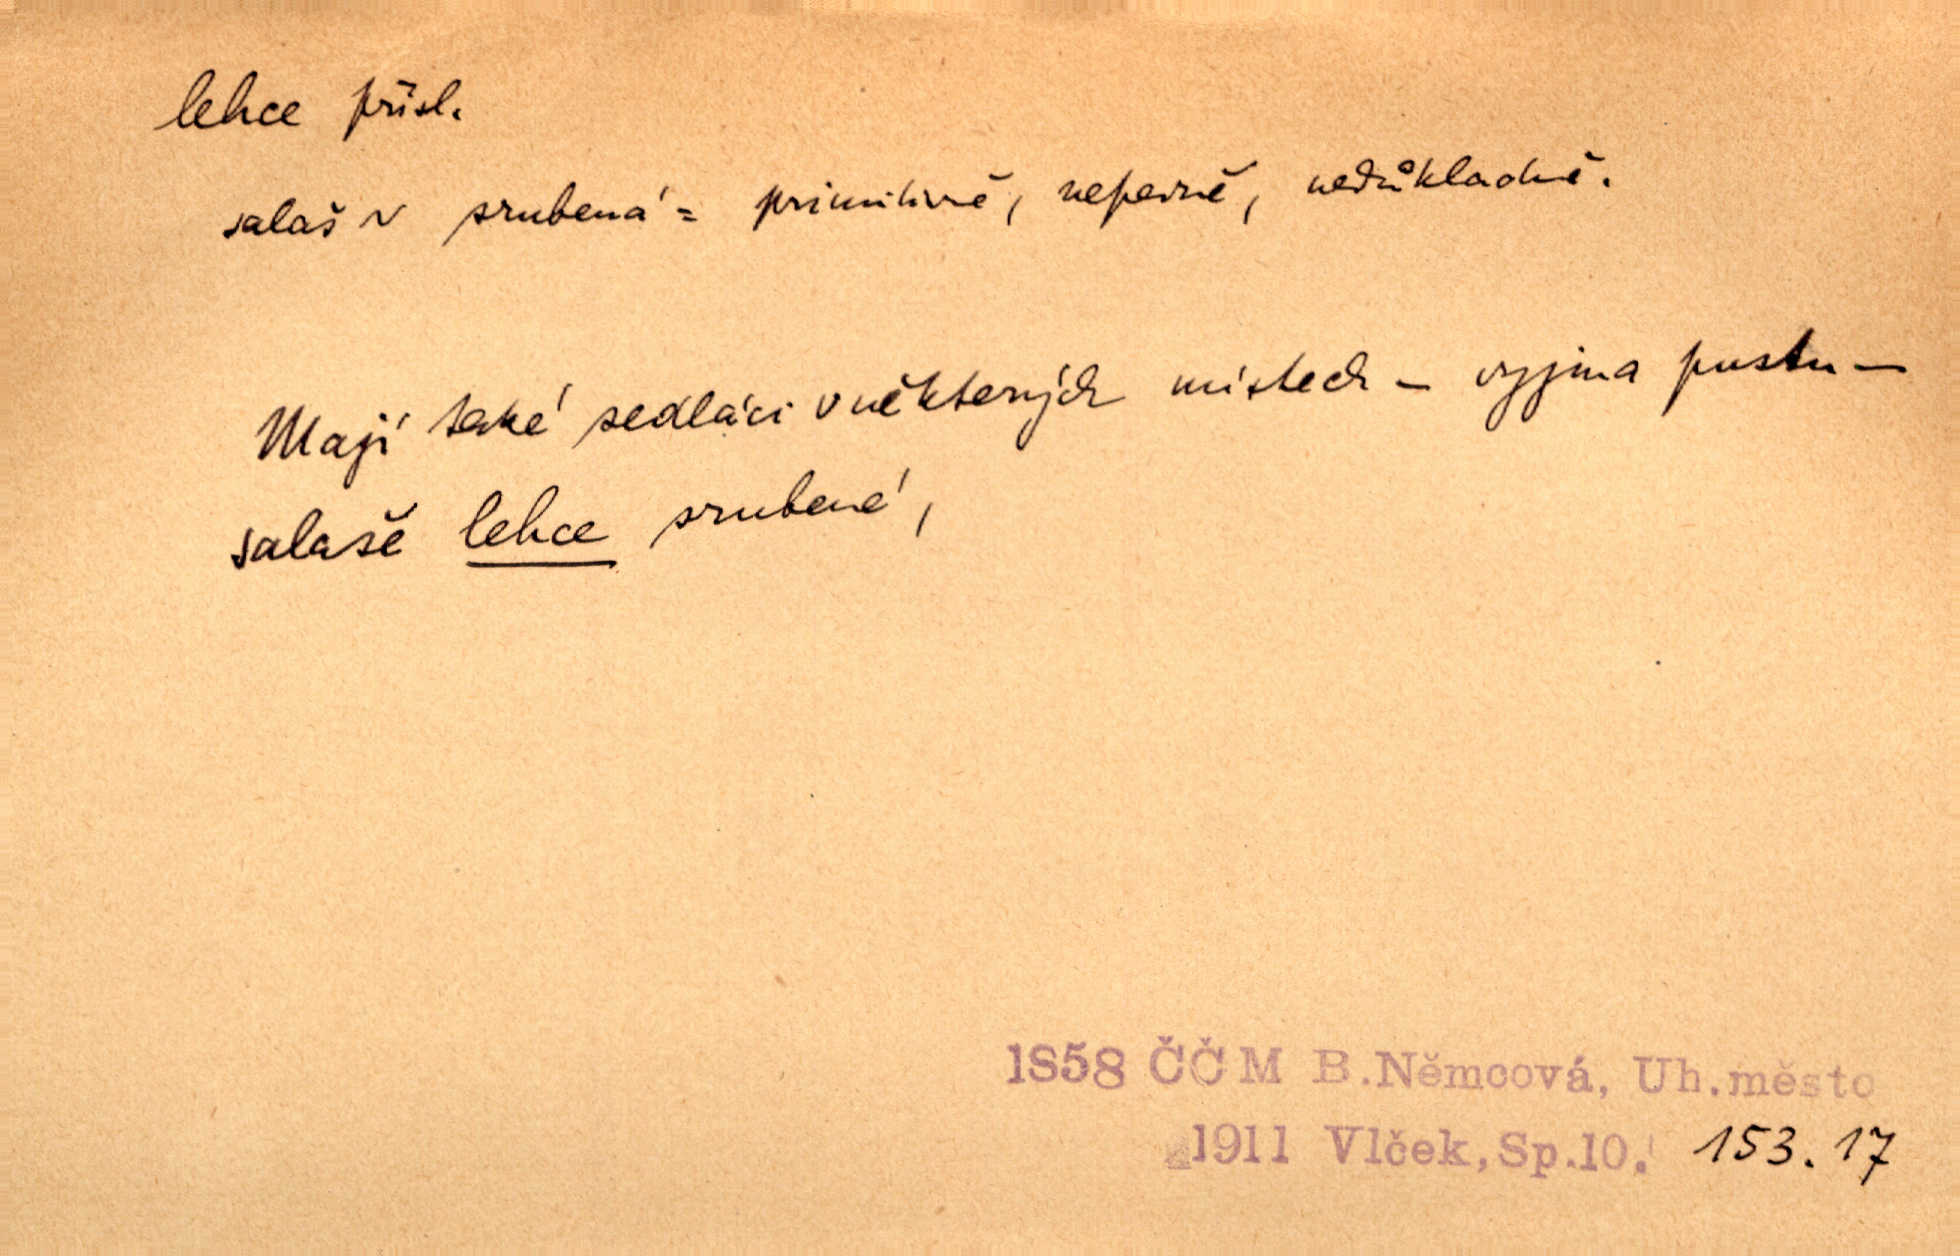 lehce přísl.
salaš ~ srubená = primitivně, nepevně, nedůkladně.
Mají také sedláci v některých místech – vyjma pustu –
salaše lehce srubené,
1858 ČČM B.Němcová, Uh.město
1911 Vlček,Sp.10. 153.17